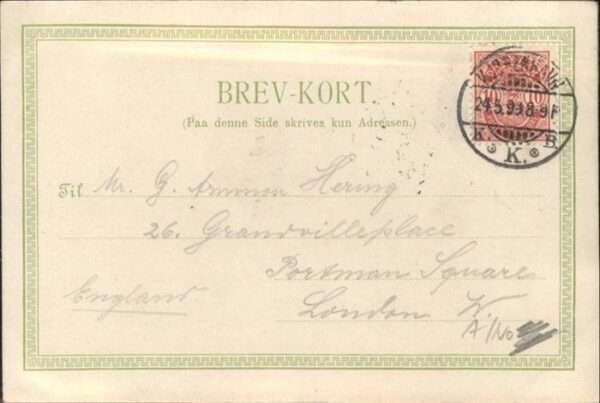 BREV-KORT.
(Paa denne Side skrives kun Adressen.)
KJØBENHAVN
10 10
24.5.99 8-9F
K. K. B.
Til Mr. G. Hering
26. Grandvilleplace
Portman Square
England
London W.